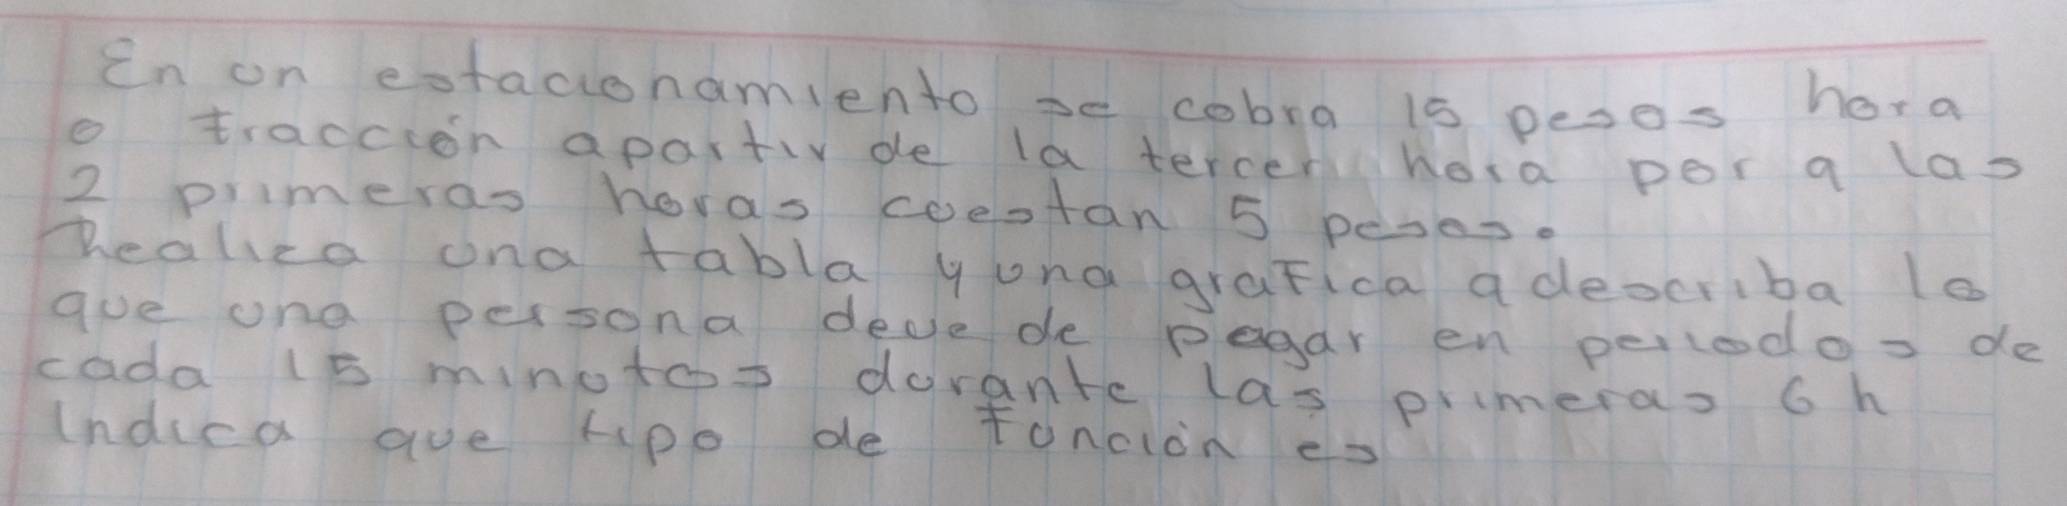 En un estacionamiento se cobra 15 pesos hora
o fracción apartir de la tercer hora por q las
2 primeras horas cuestan 5 pesos.
Realiza una tabla y una grafica q describa lo
que una persona deve de pagar en periodos de
cada 15 minutos durante las primeras 6 h
Indica que tipo de función es